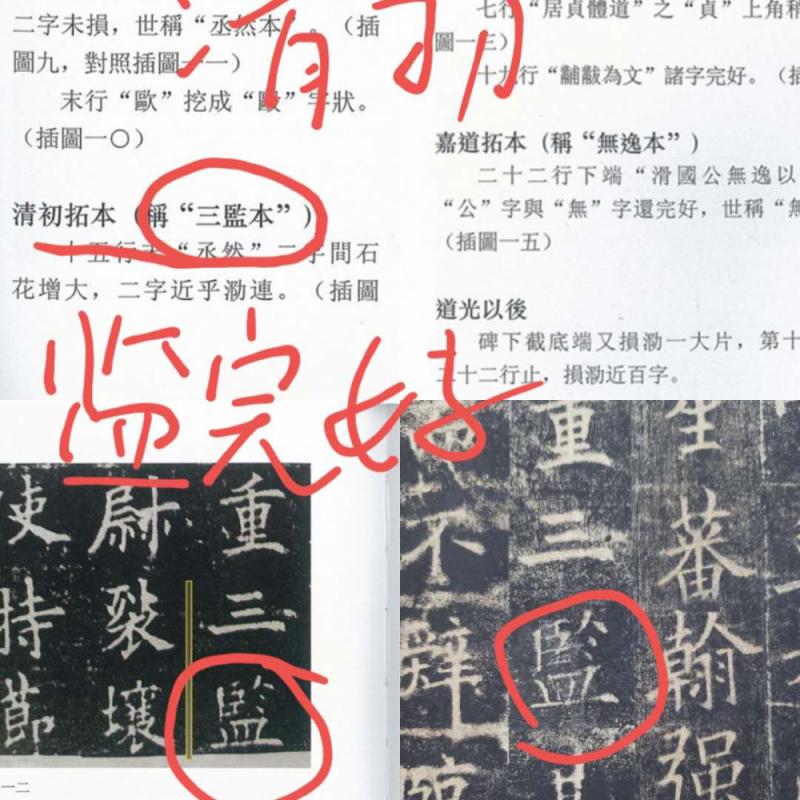 二字未損，世稱“丞然本”。（插
圖九，對照插圖一一）
末行“歐”挖成“毆”字狀。
（插圖一〇）
清初拓本（稱“三監本”）
十五行本“丞然”二字間石
花增大，二字近乎泐連。（插圖
七行“居貞體道”之“貞”上角稍
圖一三）
十九行“黼黻為文”諸字完好。（插
嘉道拓本（稱“無逸本”）
二十二行下端“滑國公無逸以
“公”字與“無”字還完好，世稱“無
（插圖一五）
道光以後
碑下截底端又損泐一大片，第十
二十二行止，損泐近百字。
清初
监完好
重三監
尉裂壤
使持節
一二
蕃翰强
重三監
不辭